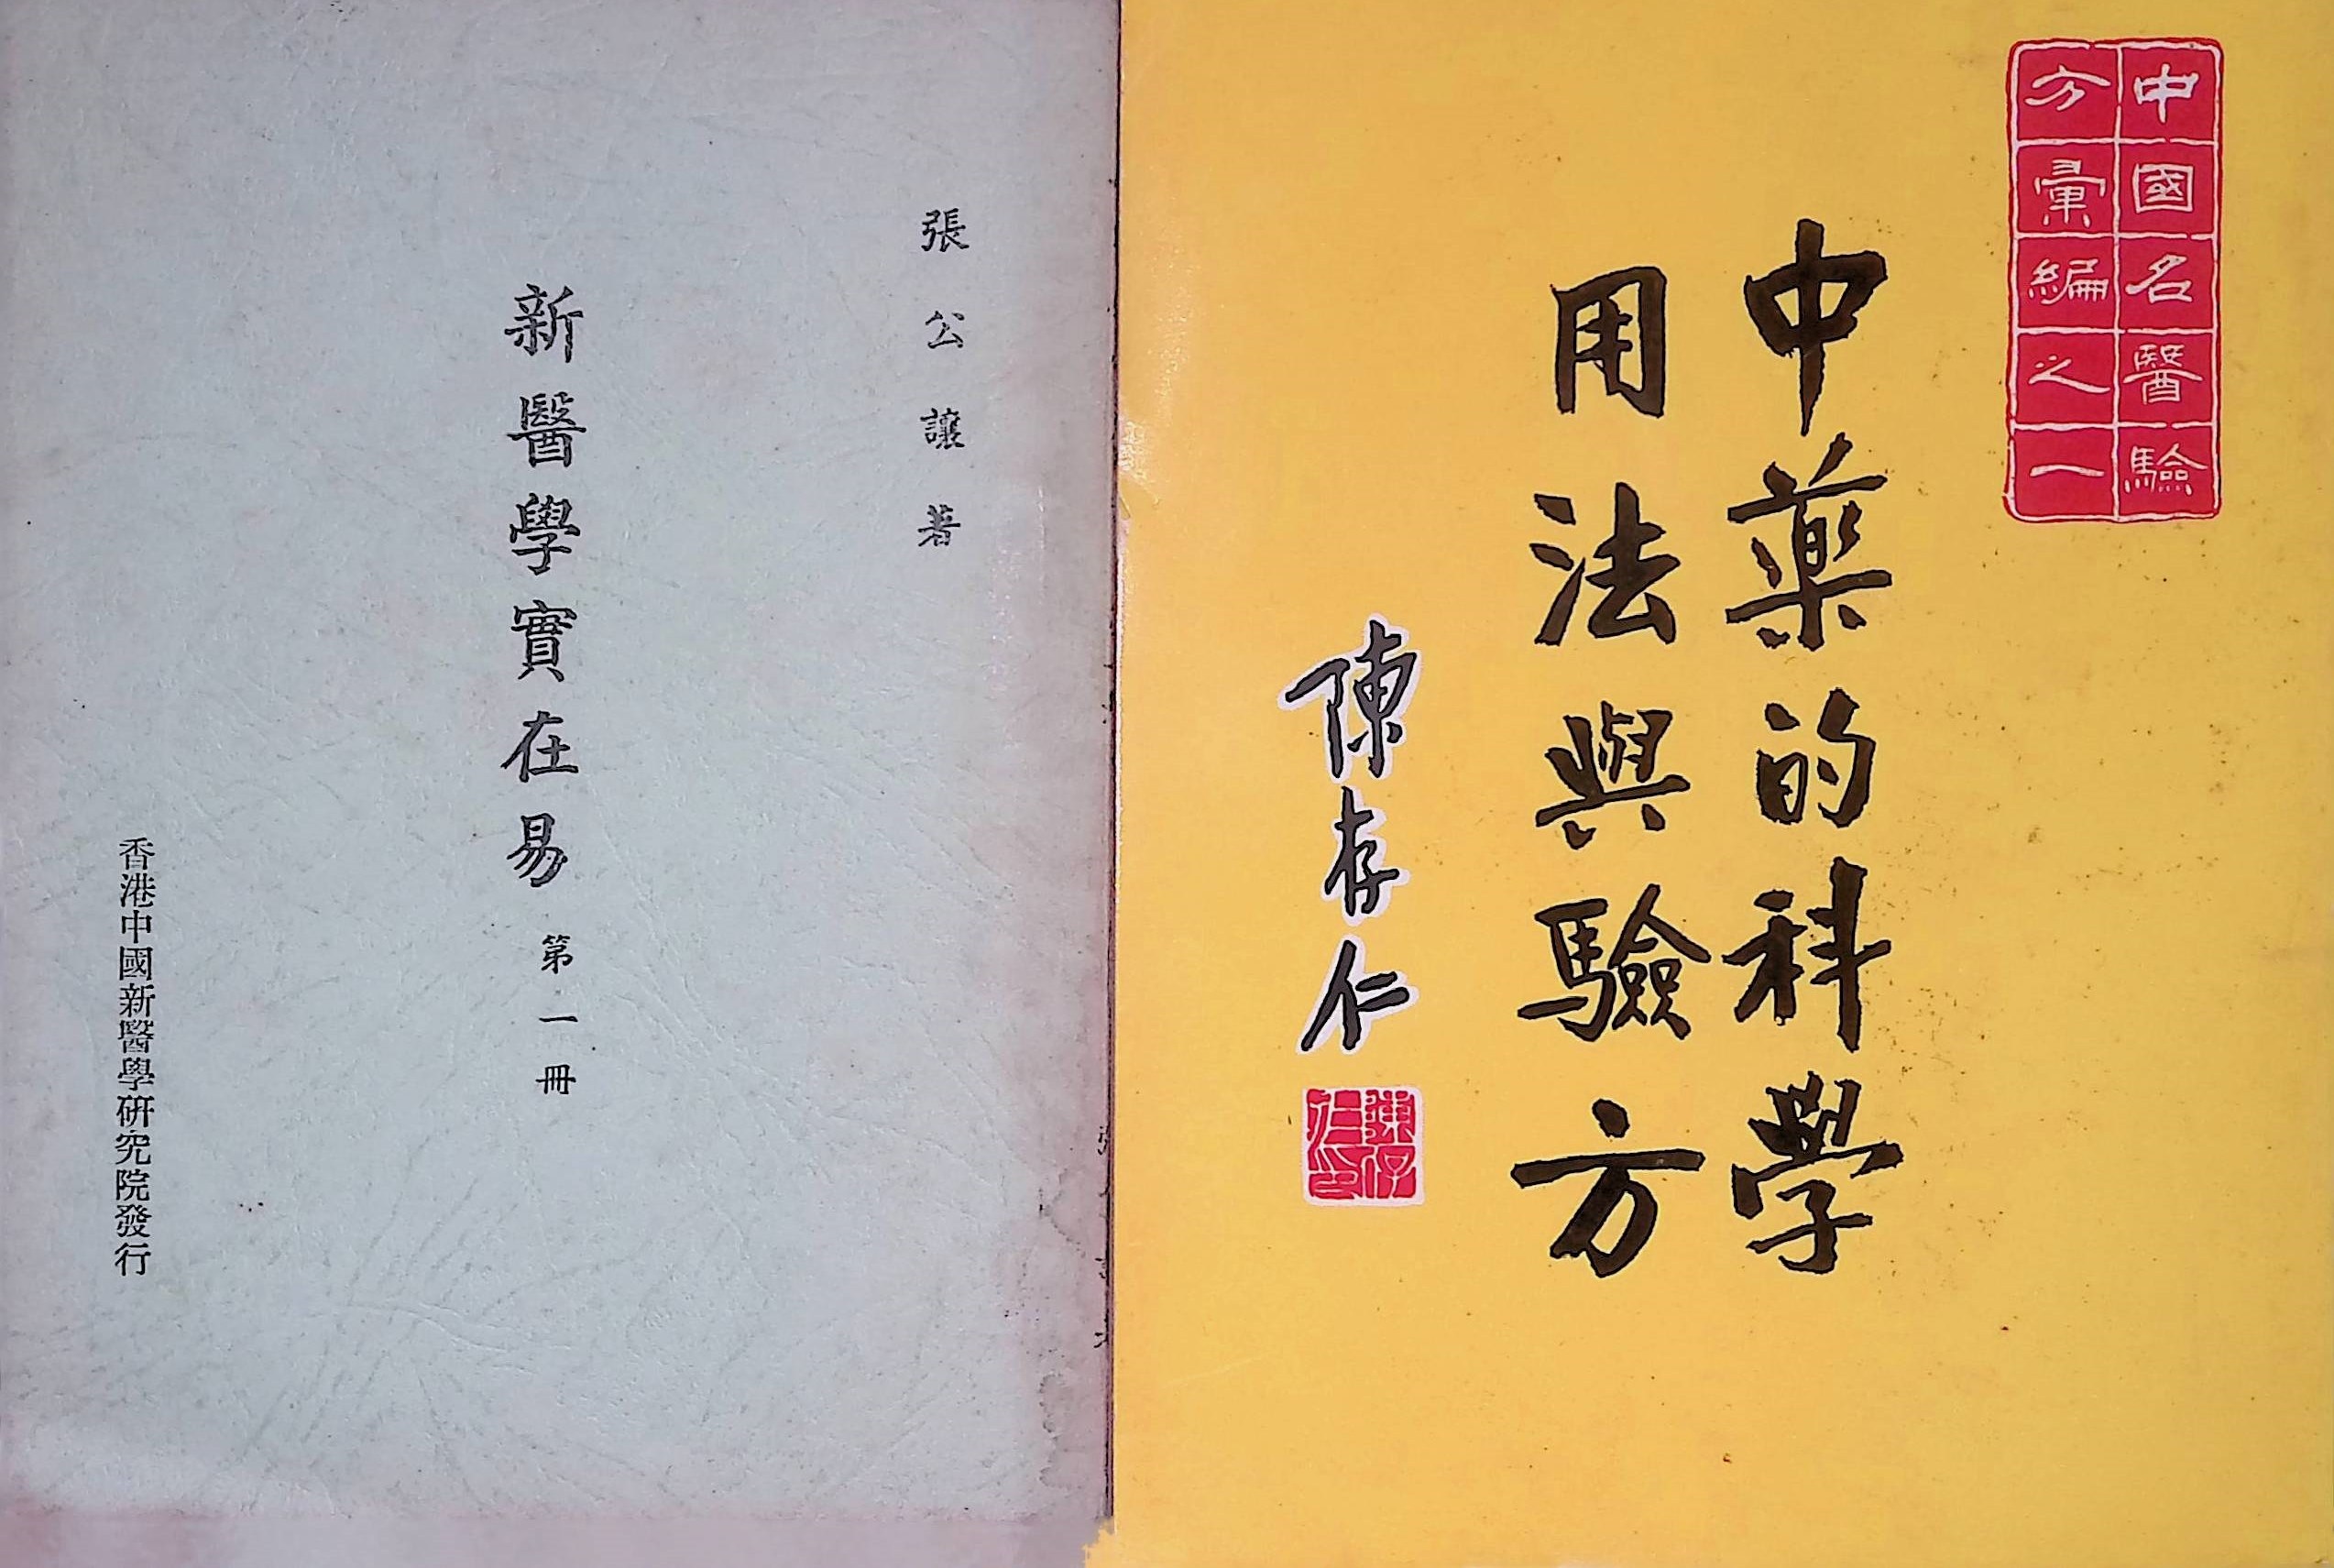 張公讓著
新醫學實在易 第一冊
香港中國新醫學研究院發行
中國名醫驗
方彙編之一
中藥的科學
用法與驗方
陳存仁
陳存
仁印